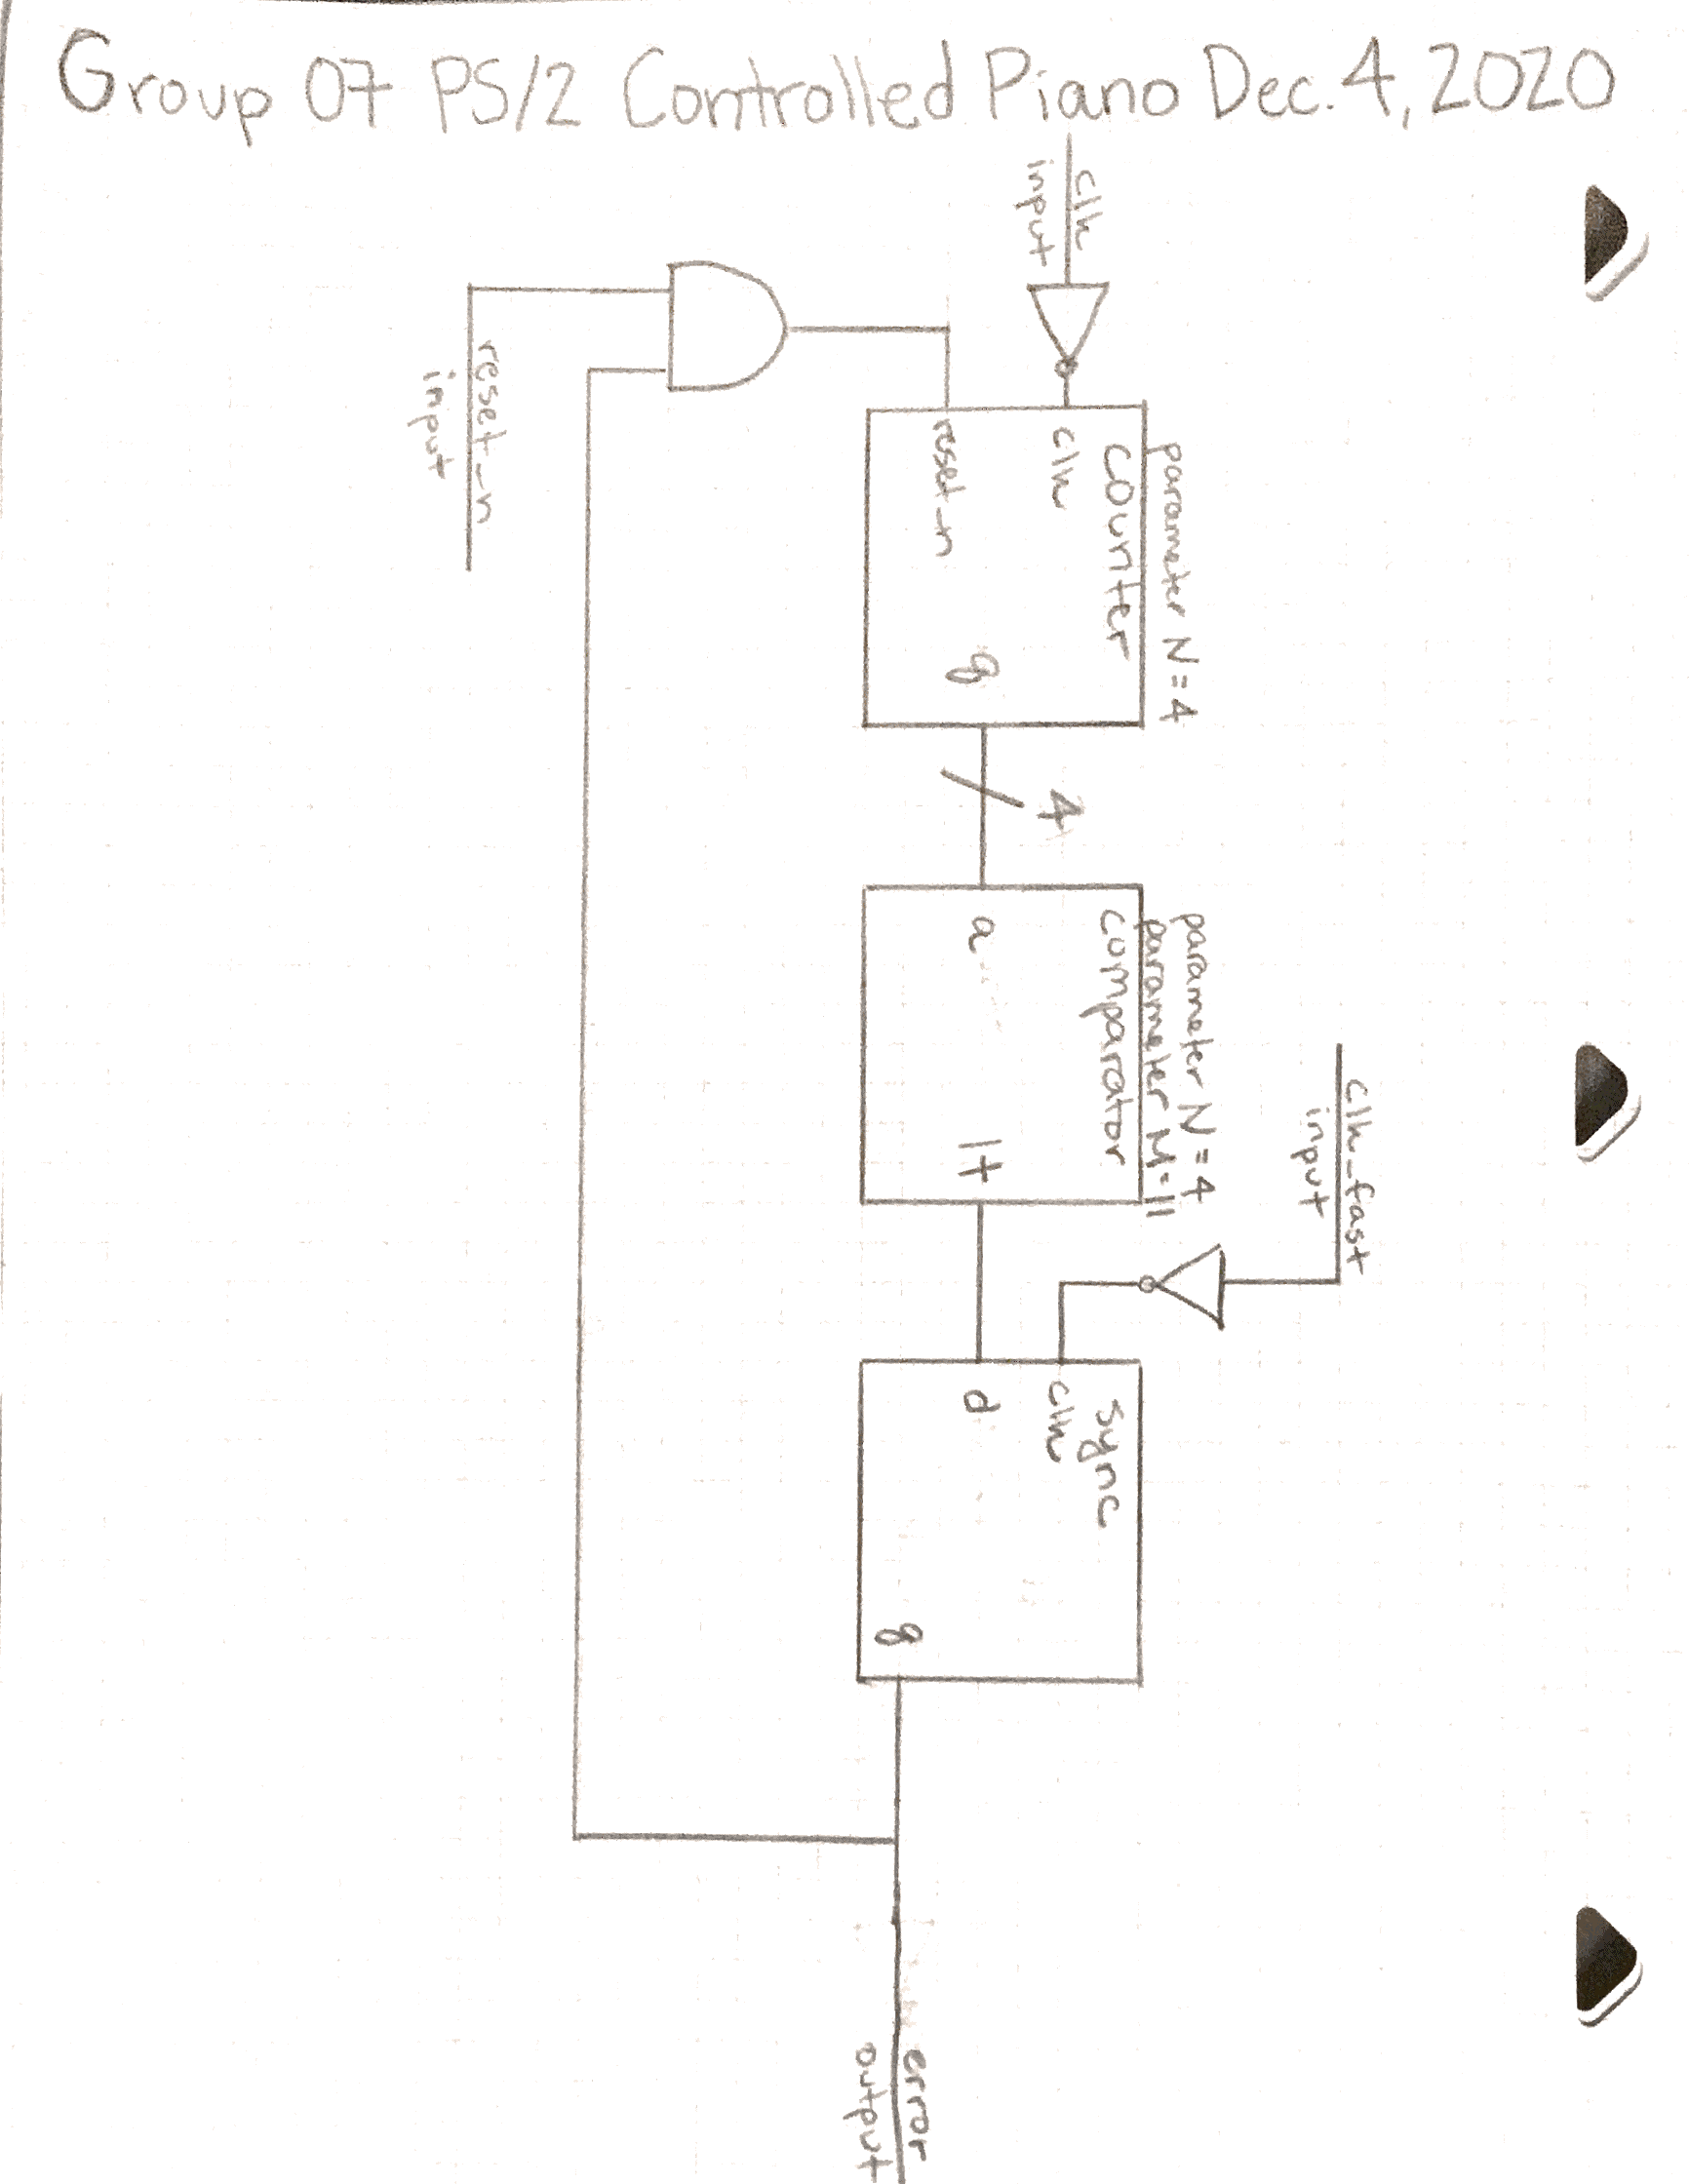 Group 07 PS/2 Controlled Piano Dec. 4, 2020
clk
input
reset_n
input
parameter N=4
counter
clk
reset_n
q
4
parameter N=4
parameter M=11
comparator
a
lt
clk_fast
input
sync
clk
d
q
error
output